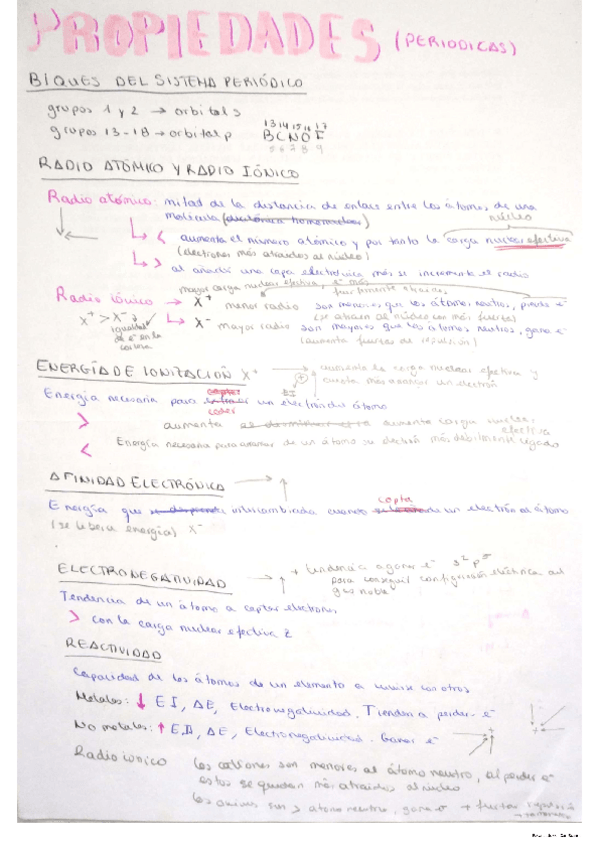 PROPIEDADES (PERIODICAS)
BLQUES DEL SISTEMA PERIÓDICO
grupos 1 y 2 → orbital s
13 14 15 16 17
grupos 13-18 → orbital p B C N O F
5 6 7 8 9
RADIO ATÓMICO Y RADIO IÓNICO
Radio atómico: mitad de la distancia de enlace entre los átomos de una
molécula (diatómica homonuclear)
núcleo
< aumenta el número atómico y por tanto la carga nuclear efectiva
(electrones más atraidos al núcleo)
> al añadir una capa electrónica más se incrementa el radio
mayor carga nuclear efectiva, e⁻ más
fuertemente atraidos
Radio iónico → X⁺ menor radio son menores que los átomos neutros, pierde e⁻
(se atraen al núcleo con más fuerza)
X⁺ > X⁻
igualdad de e⁻ en la corteza
X⁻ mayor radio son mayores que los átomos neutros, gana e⁻
(aumenta fuerzas de repulsión)
ENERGÍA DE IONIZACIÓN X⁺ → aumenta la carga nuclear efectiva y
cuesta más arrancar un electrón
EI
captar
Energía necesaria para un electrón del átomo
ceder
> aumenta aumenta carga nuclear
efectiva
< Energía necesaria para arrancar de un átomo su electrón más débilmente ligado
AFINIDAD ELECTRÓNICA
capta
Energía que se desprende intercambiada cuando un electrón el átomo
(se libera energía) X⁻
ELECTRONEGATIVIDAD + tendencia a ganar e⁻ s² p⁵
para conseguir configuración eléctrica del
gas noble
Tendencia de un átomo a captar electrones
> con la carga nuclear efectiva Z
REACTIVIDAD
Capacidad de los átomos de un elemento a unirse con otros
Metales: ↓ EI, AE, Electronegatividad. Tienden a perder e⁻
No metales: ↑ EI, AE, Electronegatividad. Ganar e⁻
Radio ionico los cationes son menores al átomo neutro, al perder e⁻
estos se quedan más atraidos al núcleo
los aniones son > átomo neutro, gana e⁻ → fuerzas repulsión